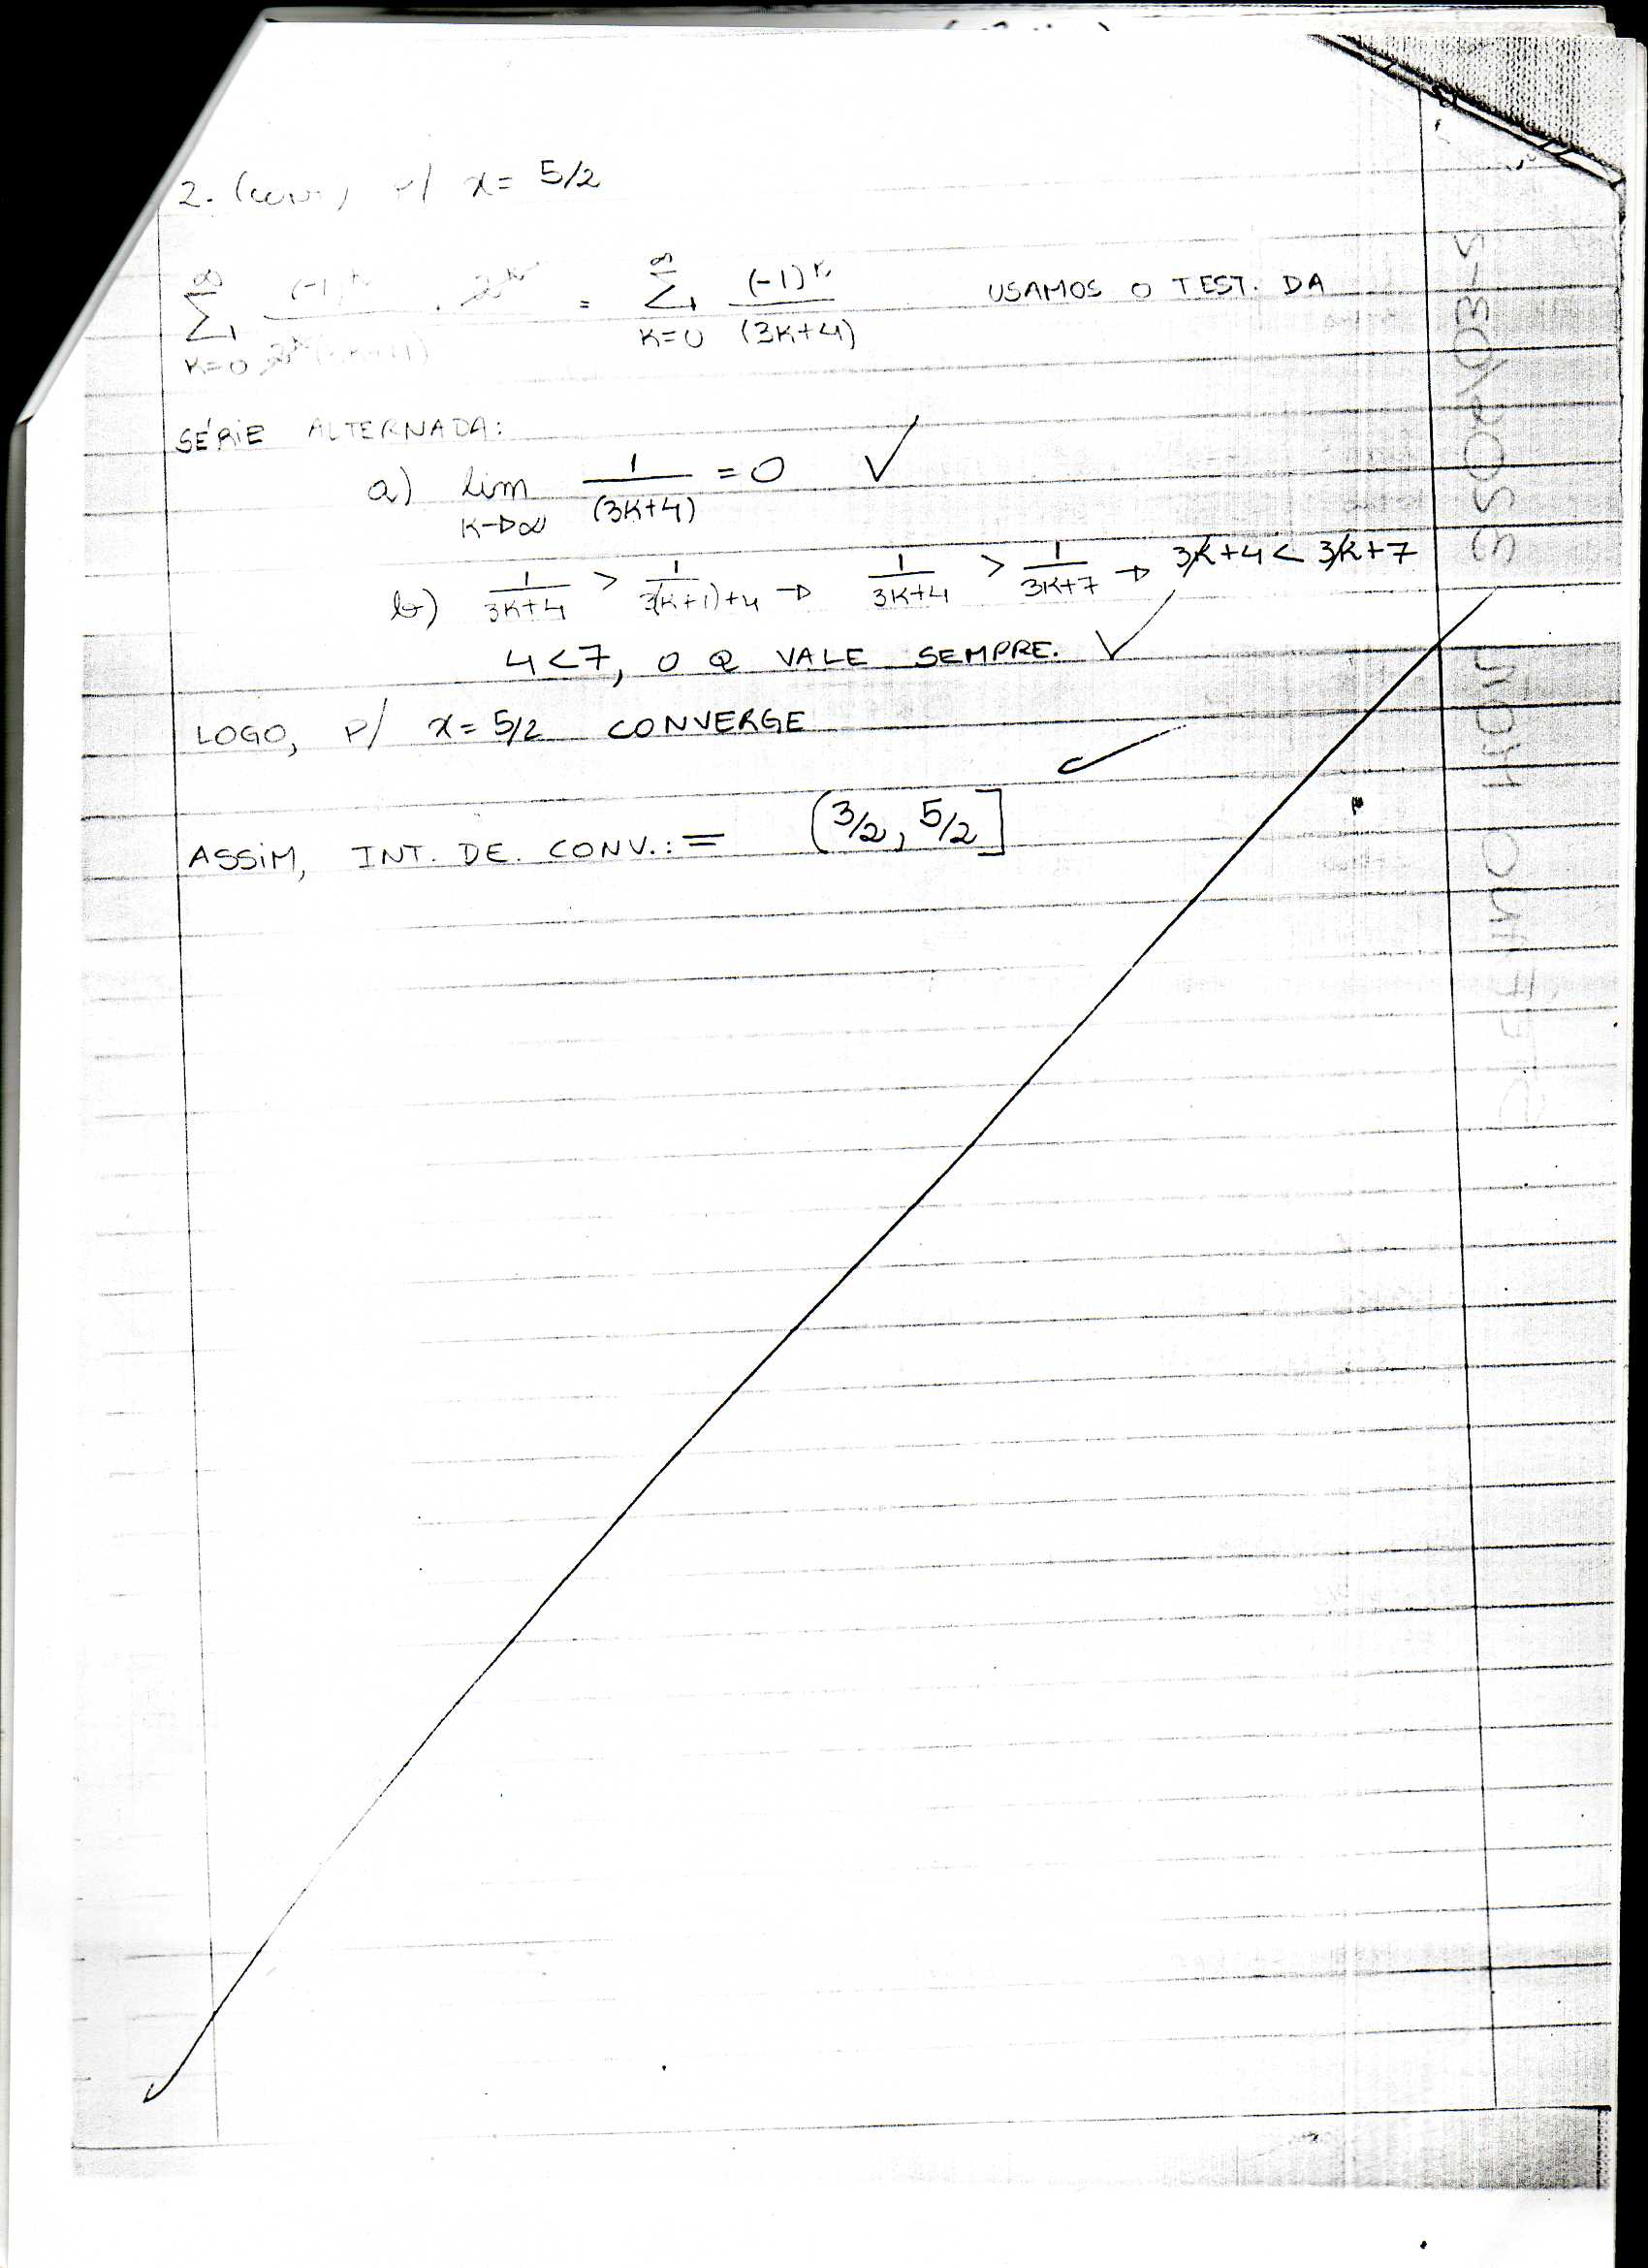 2. (cont) P/ x = 5/2
∞ Σ K=0 (-1)^K / 2^K(3K+4) · 2^K = ∞ Σ K=0 (-1)^K / (3K+4) USAMOS O TEST. DA
SÉRIE ALTERNADA:
a) lim K→∞ 1/(3K+4) = 0 ✓
b) 1/(3K+4) > 1/(3(K+1)+4) → 1/(3K+4) > 1/(3K+7) → 3K+4 < 3K+7
4<7, O Q VALE SEMPRE. ✓
LOGO, P/ x = 5/2 CONVERGE
ASSIM, INT. DE. CONV.: = (3/2, 5/2]